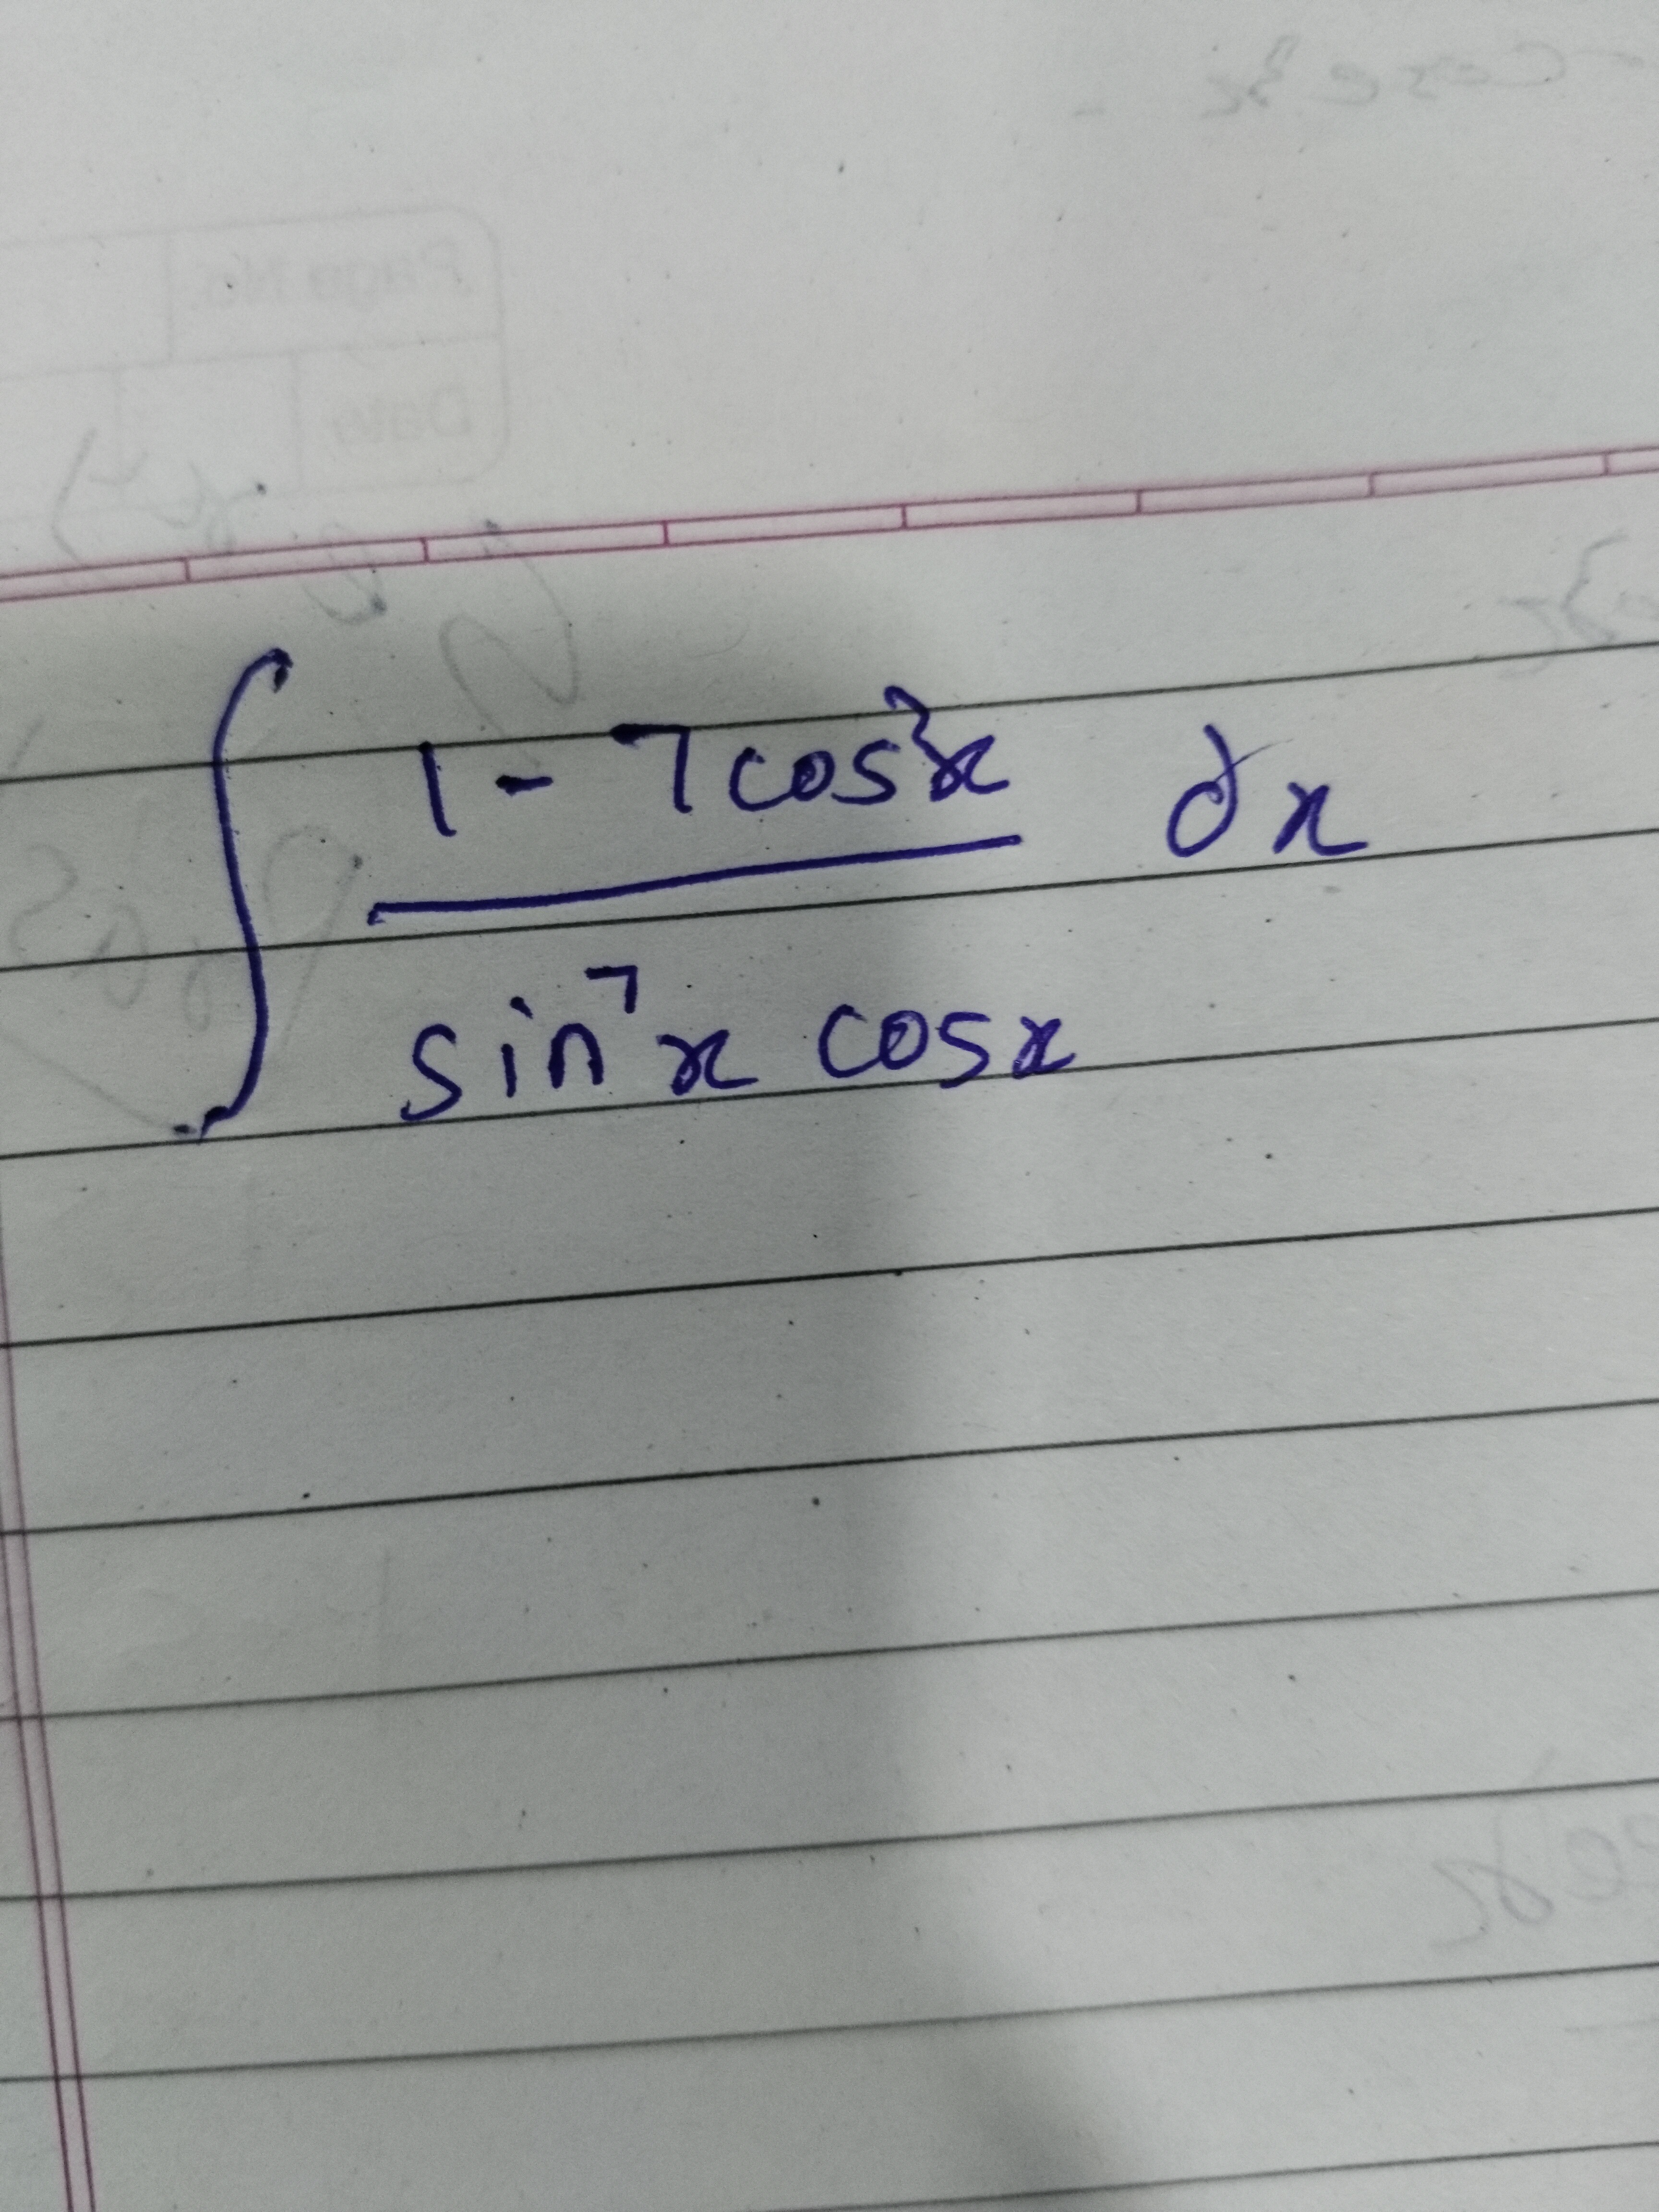 ∫ (1 - 7cos²x) / (sin⁷x cosx) dx